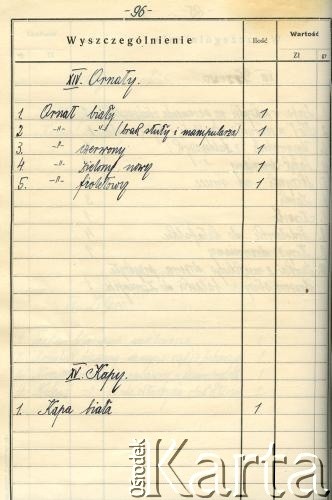 -96-
Wyszczególnienie Ilość Wartość
Zł gr
XIV. Ornaty.
1. Ornat biały 1
2 -"- -"- (brak stuły i manipularza) 1
3. -"- czerwony 1
4. -"- zielony nowy 1
5. -"- fioletowy 1
XV. Kapy.
1. Kapa biała 1
Ośrodek
Karta